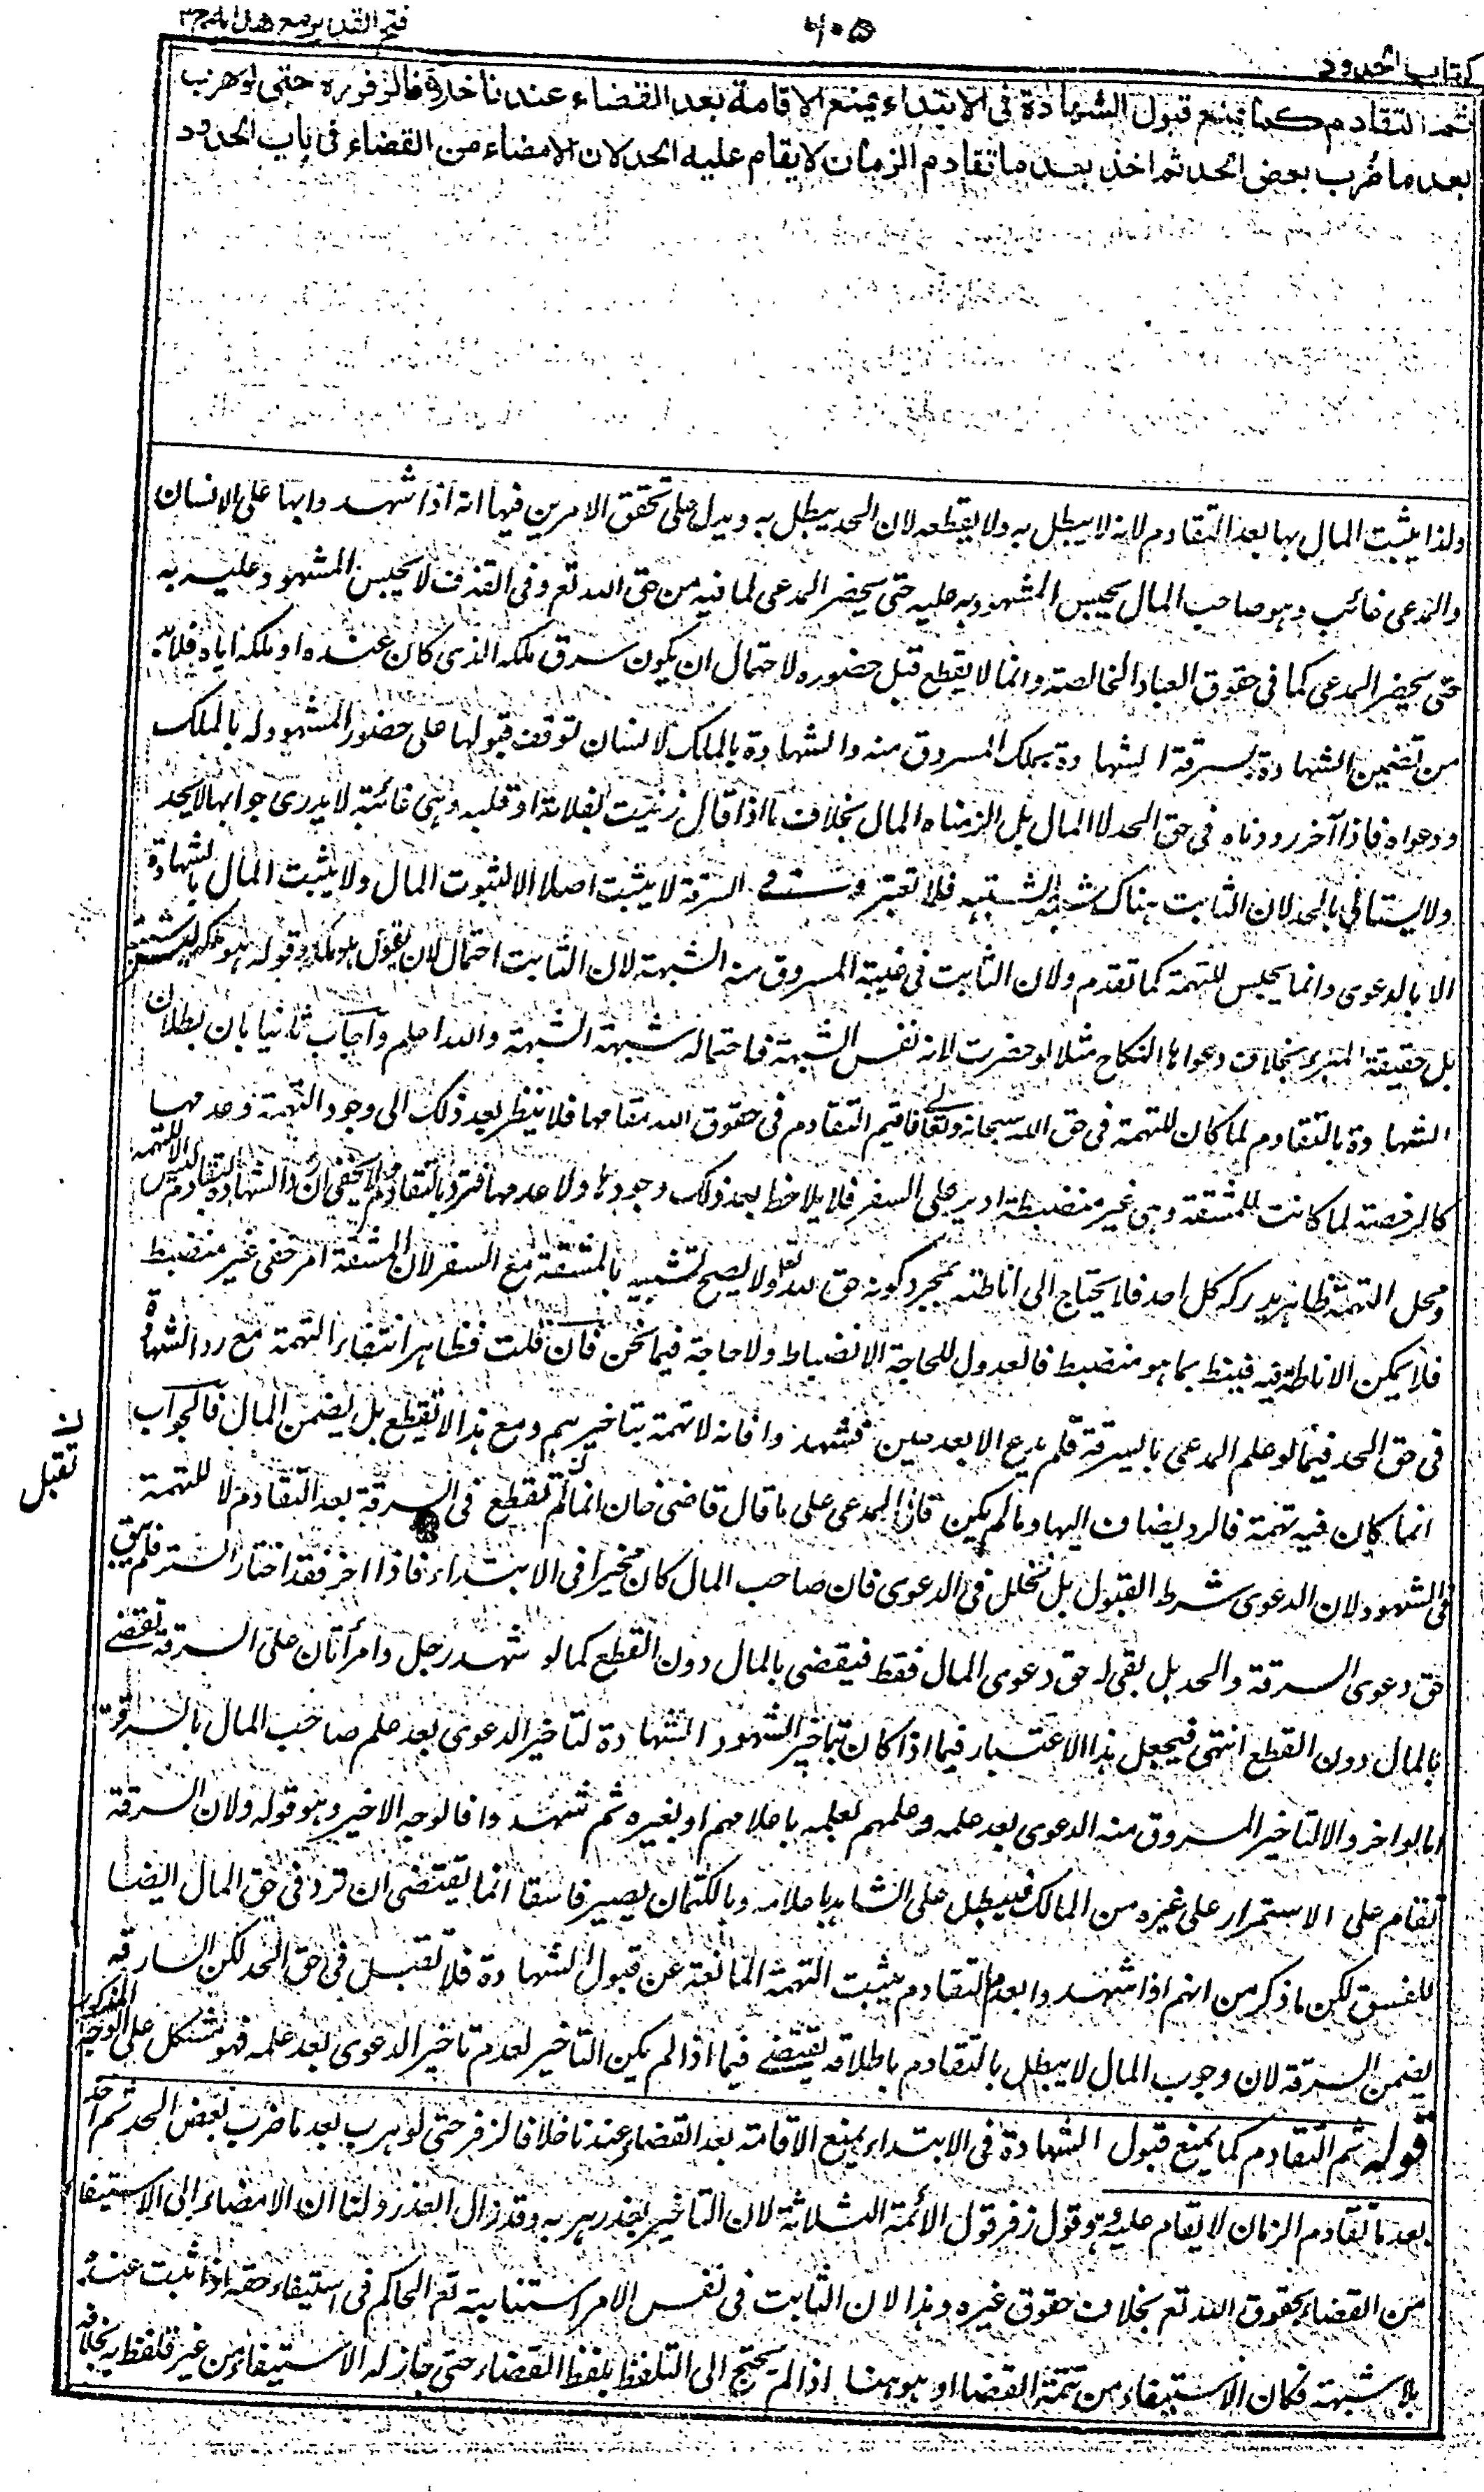 كتاب الحدود
٤٠٥
فتح القدير مع هدايه ج٣
ثم التقادم كما يمنع قبول الشهادة فى الابتداء يمنع الاقامة بعد القضاء عندنا خلافا لزفر حتى لو هرب
بعد ما ضرب بعض الحد ثم اخذ بعد ما تقادم الزمان لا يقام عليه الحد لان الامضاء من القضاء فى باب الحدود
ولذا يثبت المال بها بعد التقادم لانه لا يبطل به ولا يقطعه لان الحد يبطل به ويدل على تحقق الامرين فيها انه اذا شهدوا بها على الانسان
والمدعى غائب وهو صاحب المال يحبس المشهود به عليه حتى يحضر المدعى لما فيه من حق الله تع وفى القذف لا يحبس المشهود عليه به
حتى يحضر المدعى كما فى حقوق العباد الخالصة وانما لا يقطع قبل حضوره لاحتمال ان يكون سرق ملكه الذى كان عنده او ملكه اياه فلابد
من تضمين الشهادة بسرقة الشهادة بملك المسروق منه والشهادة بالملك لانسان توقف قبولها على حضور المشهود له بالملك
ودعواه فاذا آخر رددناه فى حق الحد لا المال بل الزمناه المال بخلاف ما اذا قال زنيت بفلانة او قلبه وهى غائبة لا يدرى جوابها لا يحد
ولا يستانى بالحد لان الثابت هناك شبهة الشبهة فلا تعتبر وفى السرقة لا يثبت اصلا الا لثبوت المال ولا يثبت المال بالشهادة
الا بالدعوى وانما يحبس للتهمة كما تقدم ولان الثابت فى غيبة المسروق منه الشبهة لان الثابت احتمال لان يقول هو ملكه وقوله هو ملكه ليس شبهة
بل حقيقة المبرئ بخلاف دعواها النكاح مثلا لو حضرت لانه نفس الشبهة فاحتماله شبهة الشبهة والله اعلم وآجاب ثانيا بان بطلان
الشهادة بالتقادم لما كان للتهمة فى حق الله سبحانه وتعالى فاقيم التقادم فى حقوق الله مقامها فلا ينظر بعد ذلك الى وجود التهمة وعدمها
كالرخصة لما كانت للمشقة وهى غير منضبطة ادير على السفر فلا يلاحظ بعد ذلك وجودها ولا عدمها فترد بالتقادم ولا يخفى ان رد الشهادة بالتقادم ليس الا للتهمة
ومحل التهمة ظاهر يدركه كل احد فلا يحتاج الى اناطته بمجرد كونه حق لله تع ولا يصح تشبيه بالمشقة مع السفر لان المشقة امر خفى غير منضبط
فلا يمكن الاناطة فيه فينط بما هو منضبط فالعدول للحاجة الانضباط ولا حاجة فيما نحن فان قلت فظاهر انتفاء التهمة مع رد الشهادة
فى حق الحد فيما لو علم المدعى بالسرقة فلم يدع الا بعد حين فشهدوا فانه لا تهمة بتاخيرهم ومع هذا لا يقطع بل يضمن المال فالجواب
انما كان فيه تهمة فالرد يضاف اليها وما لم يكن فان المدعى على ما قال قاضى خان انما لم تقطع فى السرقة بعد التقادم لا للتهمة
ن
تقبل
فى الشهود لان الدعوى شرط القبول بل لخلل فى الدعوى فان صاحب المال كان مخيرا فى الابتداء فاذا اخر فقد اختار الستر فلم يبق
حق دعوى السرقة والحد بل بقى له حق دعوى المال فقط فيقضى بالمال دون القطع كما لو شهد رجل وامرأتان على السرقة تقضى
بالمال دون القطع انتهى فيجعل هذا الاعتبار فيما اذا كان تباخير الشهود الشهادة لتاخير الدعوى بعد علم صاحب المال بالسرقة
اما لو اخر والا لتاخير المسروق منه الدعوى بعد علمه وعلمهم بعلمه باعلامهم او بغيره ثم شهدوا فالوجه الاخير وهو قوله ولان السرقة
تقام على الاستمرار على غيره من المالك فيبطل على الشاهد باعلامه وبالكتمان يصير فاسقا انما يقتضى ان ترد فى حق المال ايضا
للفسق لكن ما ذكر من انهم اذا شهدوا بعد التقادم يثبت التهمة المانعة عن قبول الشهادة فلا تقبل فى حق الحد لكن السارق
يضمن السرقة لان وجوب المال لا يبطل بالتقادم باطلاقه يقتضى فيما اذا لم يكن التاخير لعدم تاخير الدعوى بعد علمه فهو مشكل على الوجه المذكور
قوله ثم التقادم كما يمنع قبول الشهادة فى الابتداء يمنع الاقامة بعد القضاء عندنا خلافا لزفر حتى لو هرب بعد ما ضرب بعض الحد ثم اخذ
بعد ما تقادم الزمان لا يقام عليه وهو قول زفر قول الأئمة الثلاثة لان التاخير بعذر هربه وقد زال العذر ولنا ان الامضاء الى الاستيفاء
من القضاء بحقوق الله تع بخلاف حقوق غيره وهذا لان الثابت فى نفس الامر استنابية تع الحاكم فى استيفاء حقه اذا ثبت عنده
بلا شبهة فكان الاستيفاء من تتمة القضاء او هو هنا اذ لم يحتج الى التلفظ بلفظ القضاء حتى جاز له الاستيفاء من غير تلفظ به بخلافه